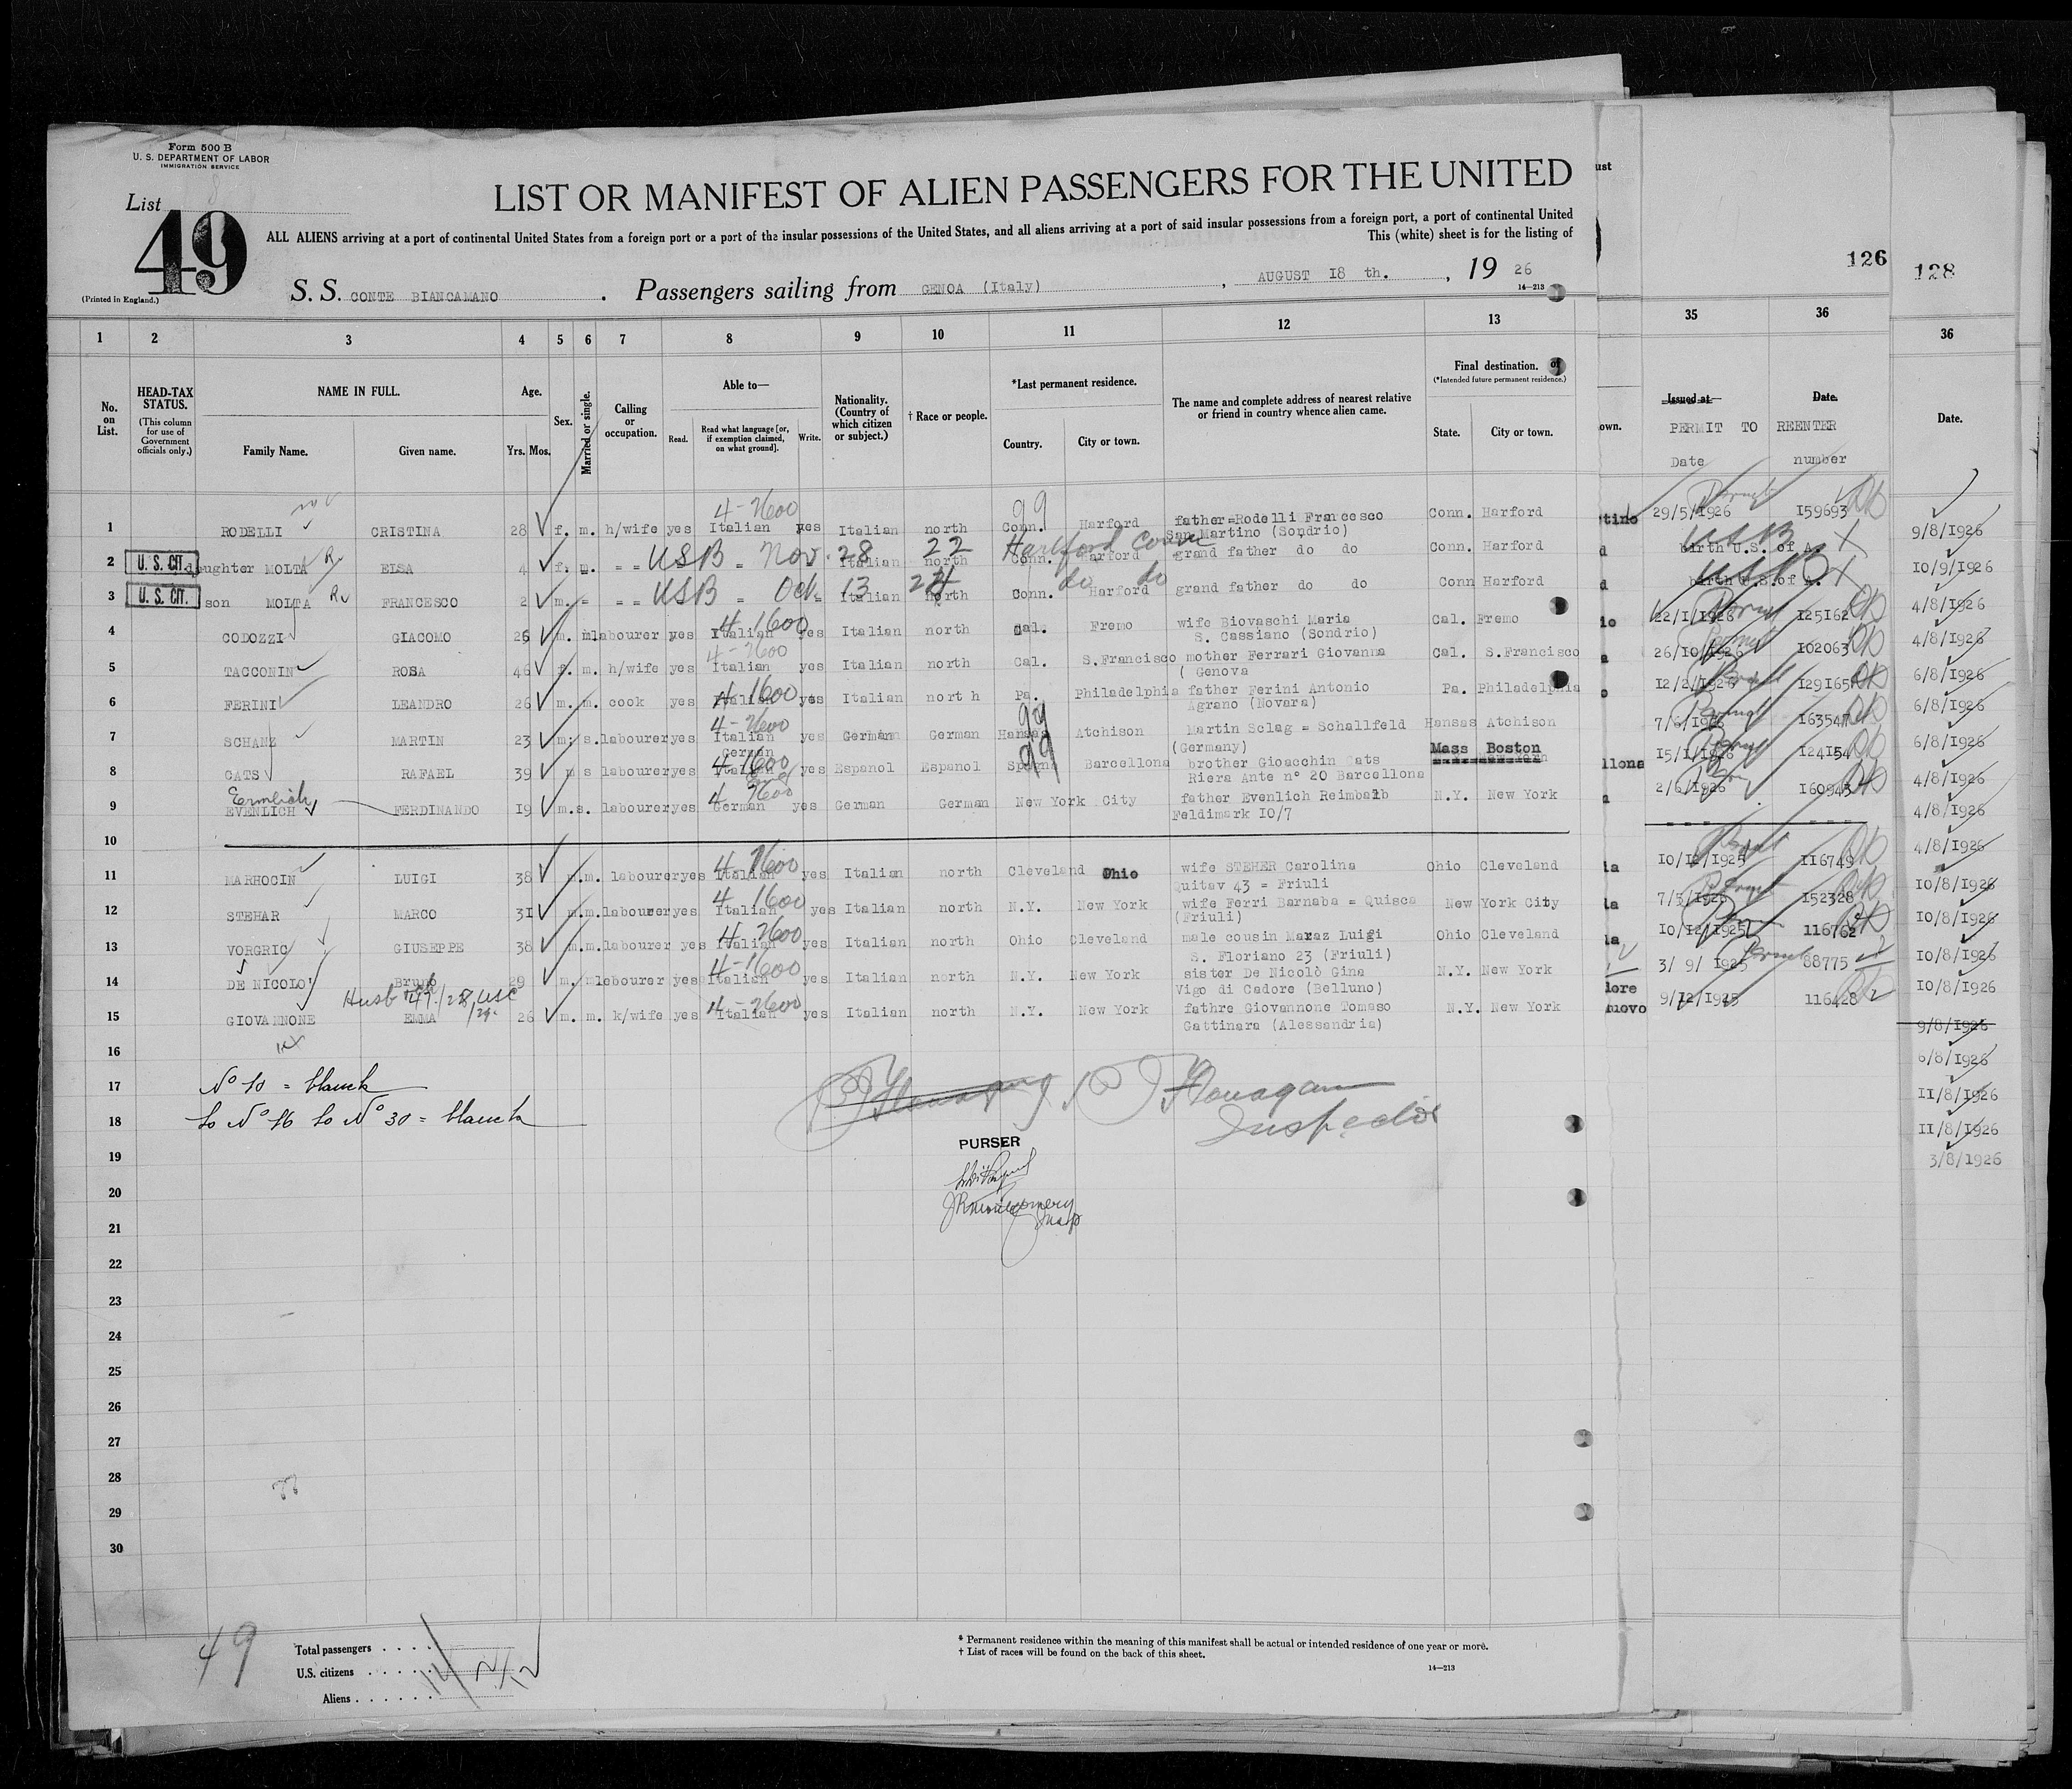 Form 500 B
U. S. DEPARTMENT OF LABOR
IMMIGRATION SERVICE
List
49
(Printed in England.)
LIST OR MANIFEST OF ALIEN PASSENGERS FOR THE UNITED
ALL ALIENS arriving at a port of continental United States from a foreign port or a port of the insular possessions of the United States, and all aliens arriving at a port of said insular possessions from a foreign port, a port of continental United
This (white) sheet is for the listing of
S. S. CONTE BIANCAMANO . Passengers sailing from GENOA (Italy) , AUGUST 18 th. , 19 26
14—213
ust
126
128
1 2 3 4 5 6 7 8 9 10 11 12 13 35 36 36
No. on List.
HEAD-TAX STATUS.
(This column for use of Government officials only.)
NAME IN FULL.
Family Name. Given name.
Age.
Yrs. Mos.
Sex.
Married or single.
Calling or occupation.
Able to—
Read. Read what language [or, if exemption claimed, on what ground]. Write.
Nationality. (Country of which citizen or subject.)
† Race or people.
*Last permanent residence.
Country. City or town.
The name and complete address of nearest relative or friend in country whence alien came.
Final destination. of
(*Intended future permanent residence.)
State. City or town.
own.
Issued at— Date. Date.
PERMIT TO REENTER
Date number
1 RODELLI CRISTINA 28 f. m. h/wife yes Italian 4-7600 yes Italian north 99 Conn. Harford father=Rodelli Francesco Conn. Harford
San Martino (Sondrio)
tino 29/5/1926 159693
2 U. S. CIT. daughter MOLTA ELSA 4 f. m. = = USB = Nov. 28 22 Italian north Hartford Conn Conn. Harford grand father do do Conn. Harford
d birth U.S. of A. USB X
3 U. S. CIT. son MOLTA FRANCESCO 2 m. = = = USB = Oct. 13 24 Italian north do do Conn. Harford grand father do do Conn Harford
d birth U.S. of A. USB X
4 CODOZZI GIACOMO 26 m. m labourer yes Italian 4 1600 yes Italian north Cal. Fremo wife Biovaschi Maria Cal. Fremo
S. Cassiano (Sondrio)
io 22/1/1926 125162
5 TACCONIN ROSA 46 f. m. h/wife yes Italian 4-7600 yes Italian north Cal. S.Francisco mother Ferrari Giovanna Cal. S.Francisco
( Genova
a 26/10/1926 102063
6 FERINI LEANDRO 26 m. m. cook yes Italian 4 1600 yes Italian nort h Pa. Philadelphia father Ferini Antonio Pa. Philadelphia
Agrano (Novara)
o 12/2/1926 129165
7 SCHANZ MARTIN 23 m. s. labourer yes Italian 4-7600 yes German German 99 Hansas Atchison Martin Sclag = Schallfeld Hansas Atchison
German (Germany)
7/6/1926 163547
8 CATS RAFAEL 39 m s labourer yes Italian 4 1600 yes Espanol Espanol 99 Spagna Barcellona brother Gioacchin Cats Mass Boston
Riera Ante n° 20 Barcellona
llona 15/1/1926 124154
9 EVENLICH FERDINANDO 19 m. s. labourer yes German 4 7600 yes German German New York City father Evenlich Reimbalb N.Y. New York
Feldimark 10/7
a 2/6/1926 160945
10
11 MARHOCIN LUIGI 38 m. m. labourer yes Italian 4 7600 yes Italian north Cleveland Ohio wife STEHER Carolina Ohio Cleveland
Quitav 43 = Friuli
ia 10/12/1925 116749
12 STEHAR MARCO 31 m. m. labourer yes Italian 4 1600 yes Italian north N.Y. New York wife Ferri Barnaba = Quisca New York City
(Friuli)
la 7/5/1926 152328
13 VORGRIC GIUSEPPE 38 m. m. labourer yes Italian 4 7600 yes Italian north Ohio Cleveland male cousin Maraz Luigi Ohio Cleveland
S. Floriano 23 (Friuli)
la 10/12/1925 116762
14 DE NICOLO' Bruno 29 m. m lebourer yes Italian 4-1600 yes Italian north N.Y. New York sister De Nicolò Gina N.Y. New York
Vigo di Cadore (Belluno)
lore 3/ 9/ 1925 88775
15 GIOVANNONE EMMA 26 m. m. k/wife yes Italian 4-7600 yes Italian north N.Y. New York fathre Giovannone Tomaso N.Y. New York
Gattinara (Alessandria)
nuovo 9/12/1925 116428
9/8/1926
10/9/1926
4/8/1926
4/8/1926
6/8/1926
6/8/1926
6/8/1926
4/8/1926
4/8/1926
4/8/1926
10/8/1926
10/8/1926
10/8/1926
10/8/1926
9/8/1926
6/8/1926
11/8/1926
11/8/1926
3/8/1926
16
17 N° 10 = blanck
18 to N° 16 to N° 30 = blanck
Flanagan
Inspector
PURSER
JR Montgomery
Insp
19
20
21
22
23
24
25
26
27
28
29
30
49
Total passengers . . . .
U.S. citizens . . . . . .
Aliens . . . . . .
14/2/12
* Permanent residence within the meaning of this manifest shall be actual or intended residence of one year or more.
† List of races will be found on the back of this sheet.
14—213